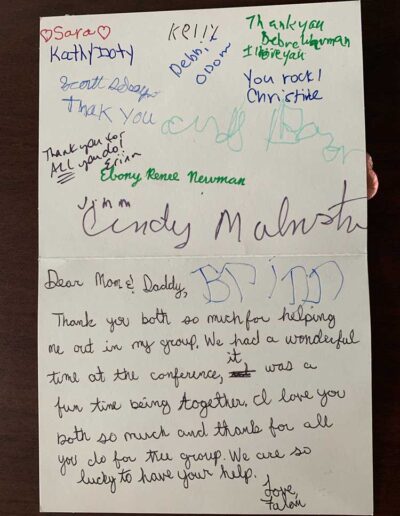 ♡Sara♡
Kelly
Thank you
I love yah
Kathy Doty
Debbi
Odom
You rock!
Christine
Scott
Thank you
Cindy
Thank you for
ALL you do!
Erin
Ebony Renee Newman
Jimm
Cindy
Dear Mom & Daddy,
Thank you both so much for helping
me out in my group. We had a wonderful
time at the conference, it was a
fun time being together. I love you
both so much and thank for all
you do for the group. We are so
lucky to have your help.
Love,
Falon